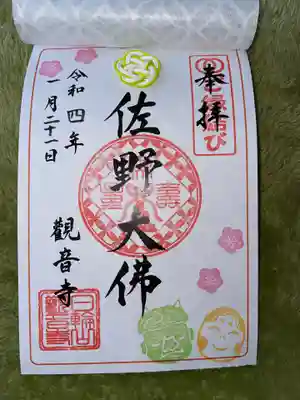 奉拝
縁結び
佐野大佛
令和四年
一月二十一日
觀音寺
日輪山